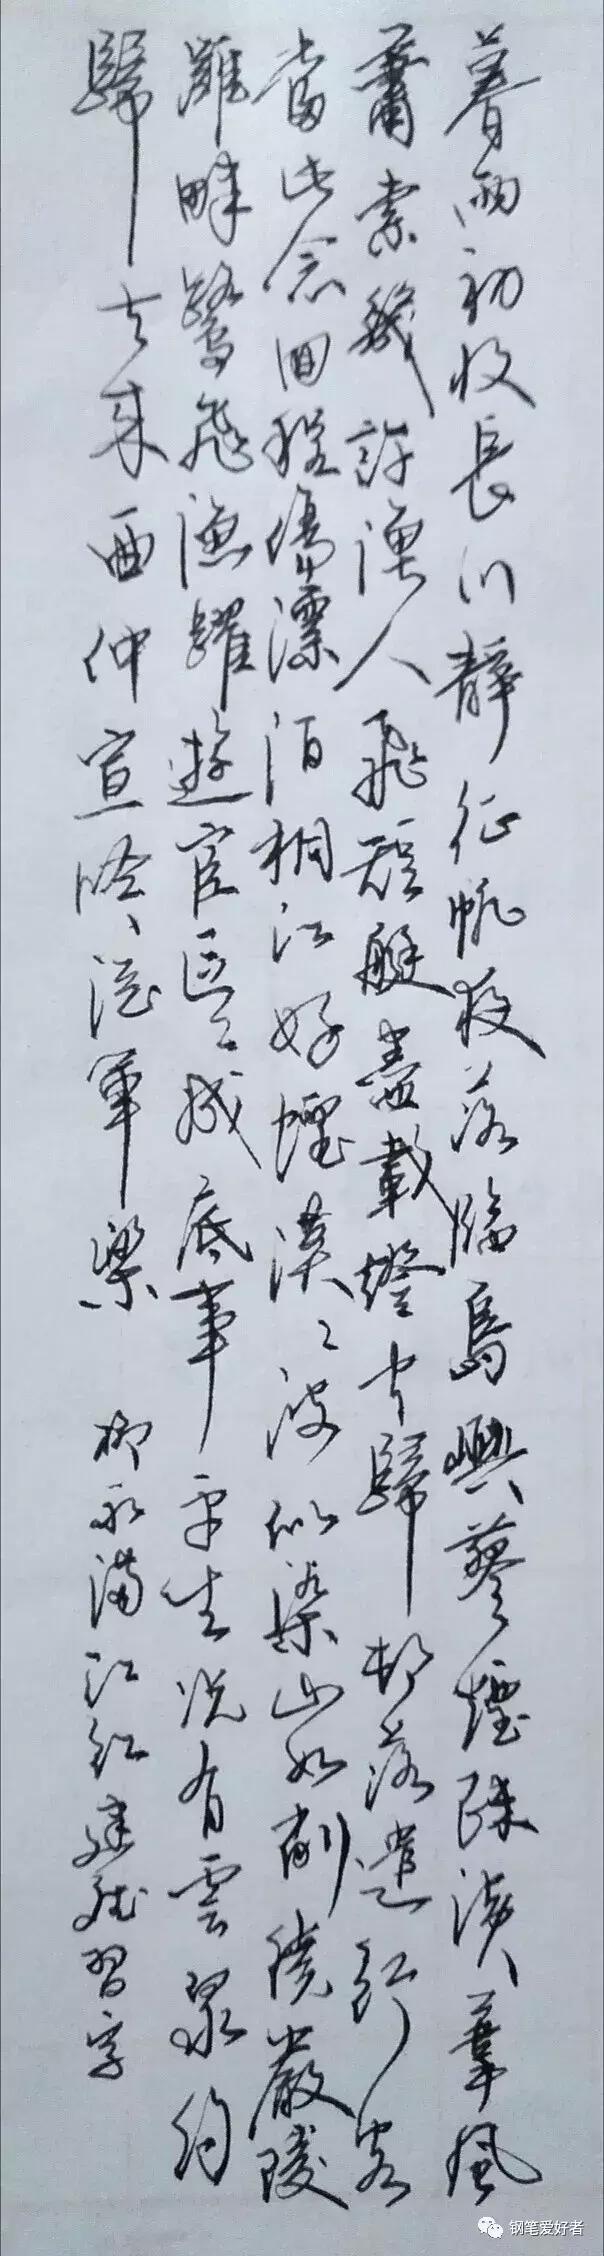 暮雨初收長川靜征帆夜落臨島嶼蓼煙疎淡葦風
蕭索幾許漁人飛短艇盡載燈火歸村落遣行客
當此念回程傷漂泊桐江好煙漠〻波似染山如削繞嚴陵
灘畔鷺飛漁躍遊宦區〻成底事平生況有雲泉約
歸去来一曲仲宣吟從軍樂 柳永滿江紅 建習字
钢笔爱好者